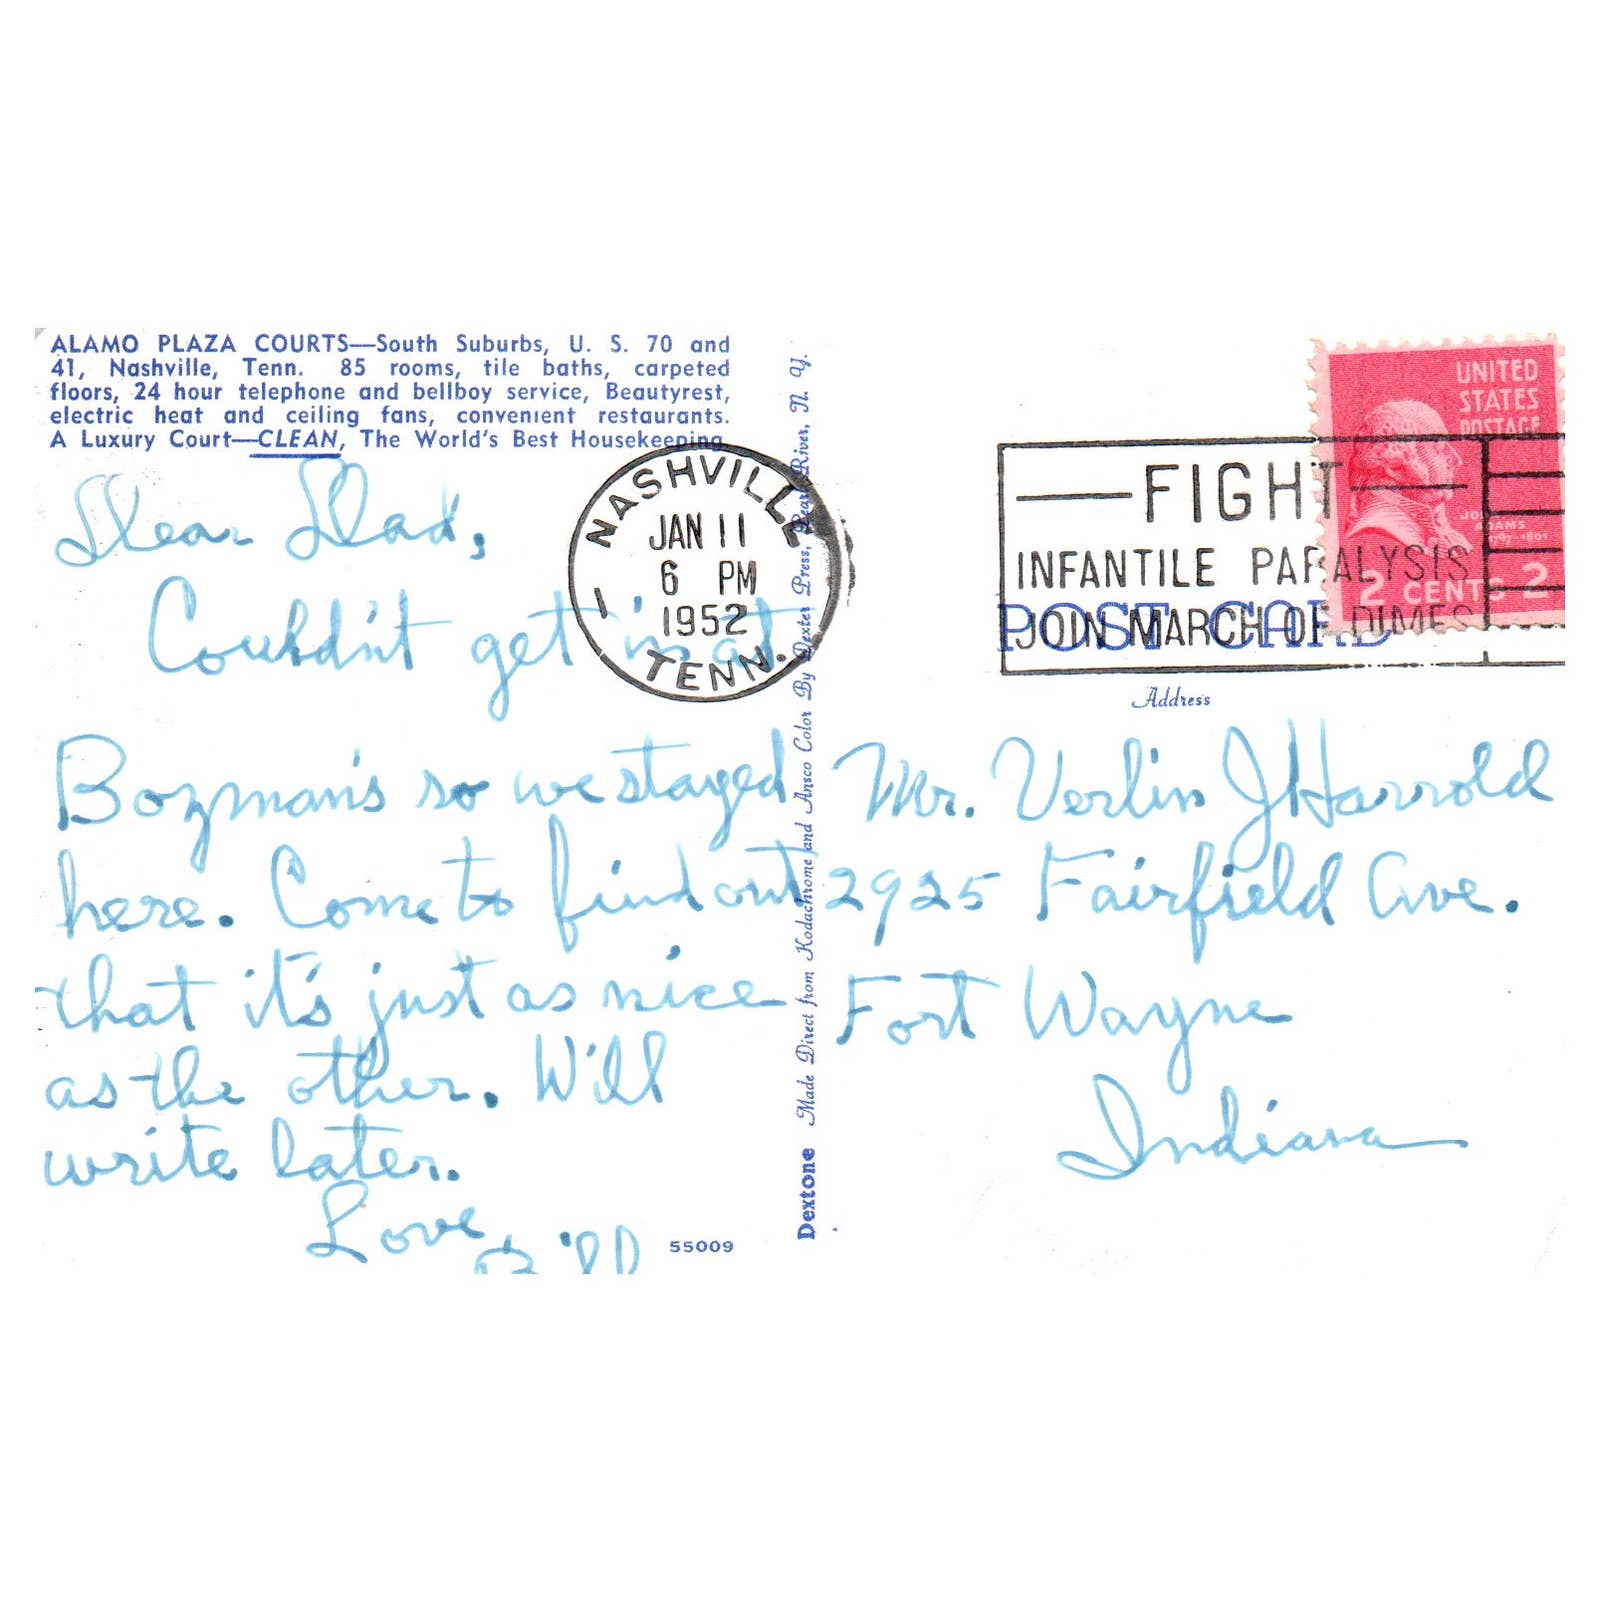 ALAMO PLAZA COURTS—South Suburbs, U. S. 70 and
41, Nashville, Tenn. 85 rooms, tile baths, carpeted
floors, 24 hour telephone and bellboy service, Beautyrest,
electric heat and ceiling fans, convenient restaurants.
A Luxury Court—CLEAN, The World's Best Housekeeping
Dear Dad,
Couldn't get in at
Bozman's so we stayed
here. Come to find out
that it's just as nice
as the other. Will
write later.
Love,
Bill
55009
NASHVILLE
JAN 11
6 PM
1952
1 TENN.
Dextone Made Direct from Kodachrome and Ansco Color By Dexter Press, Pearl River, N. Y.
FIGHT
INFANTILE PARALYSIS
JOIN MARCH OF DIMES
UNITED
STATES
POSTAGE
JOHN
ADAMS
1797-1801
2 CENTS 2
POST CARD
Address
Mr. Verlin J Harrold
2925 Fairfield Ave.
Fort Wayne
Indiana